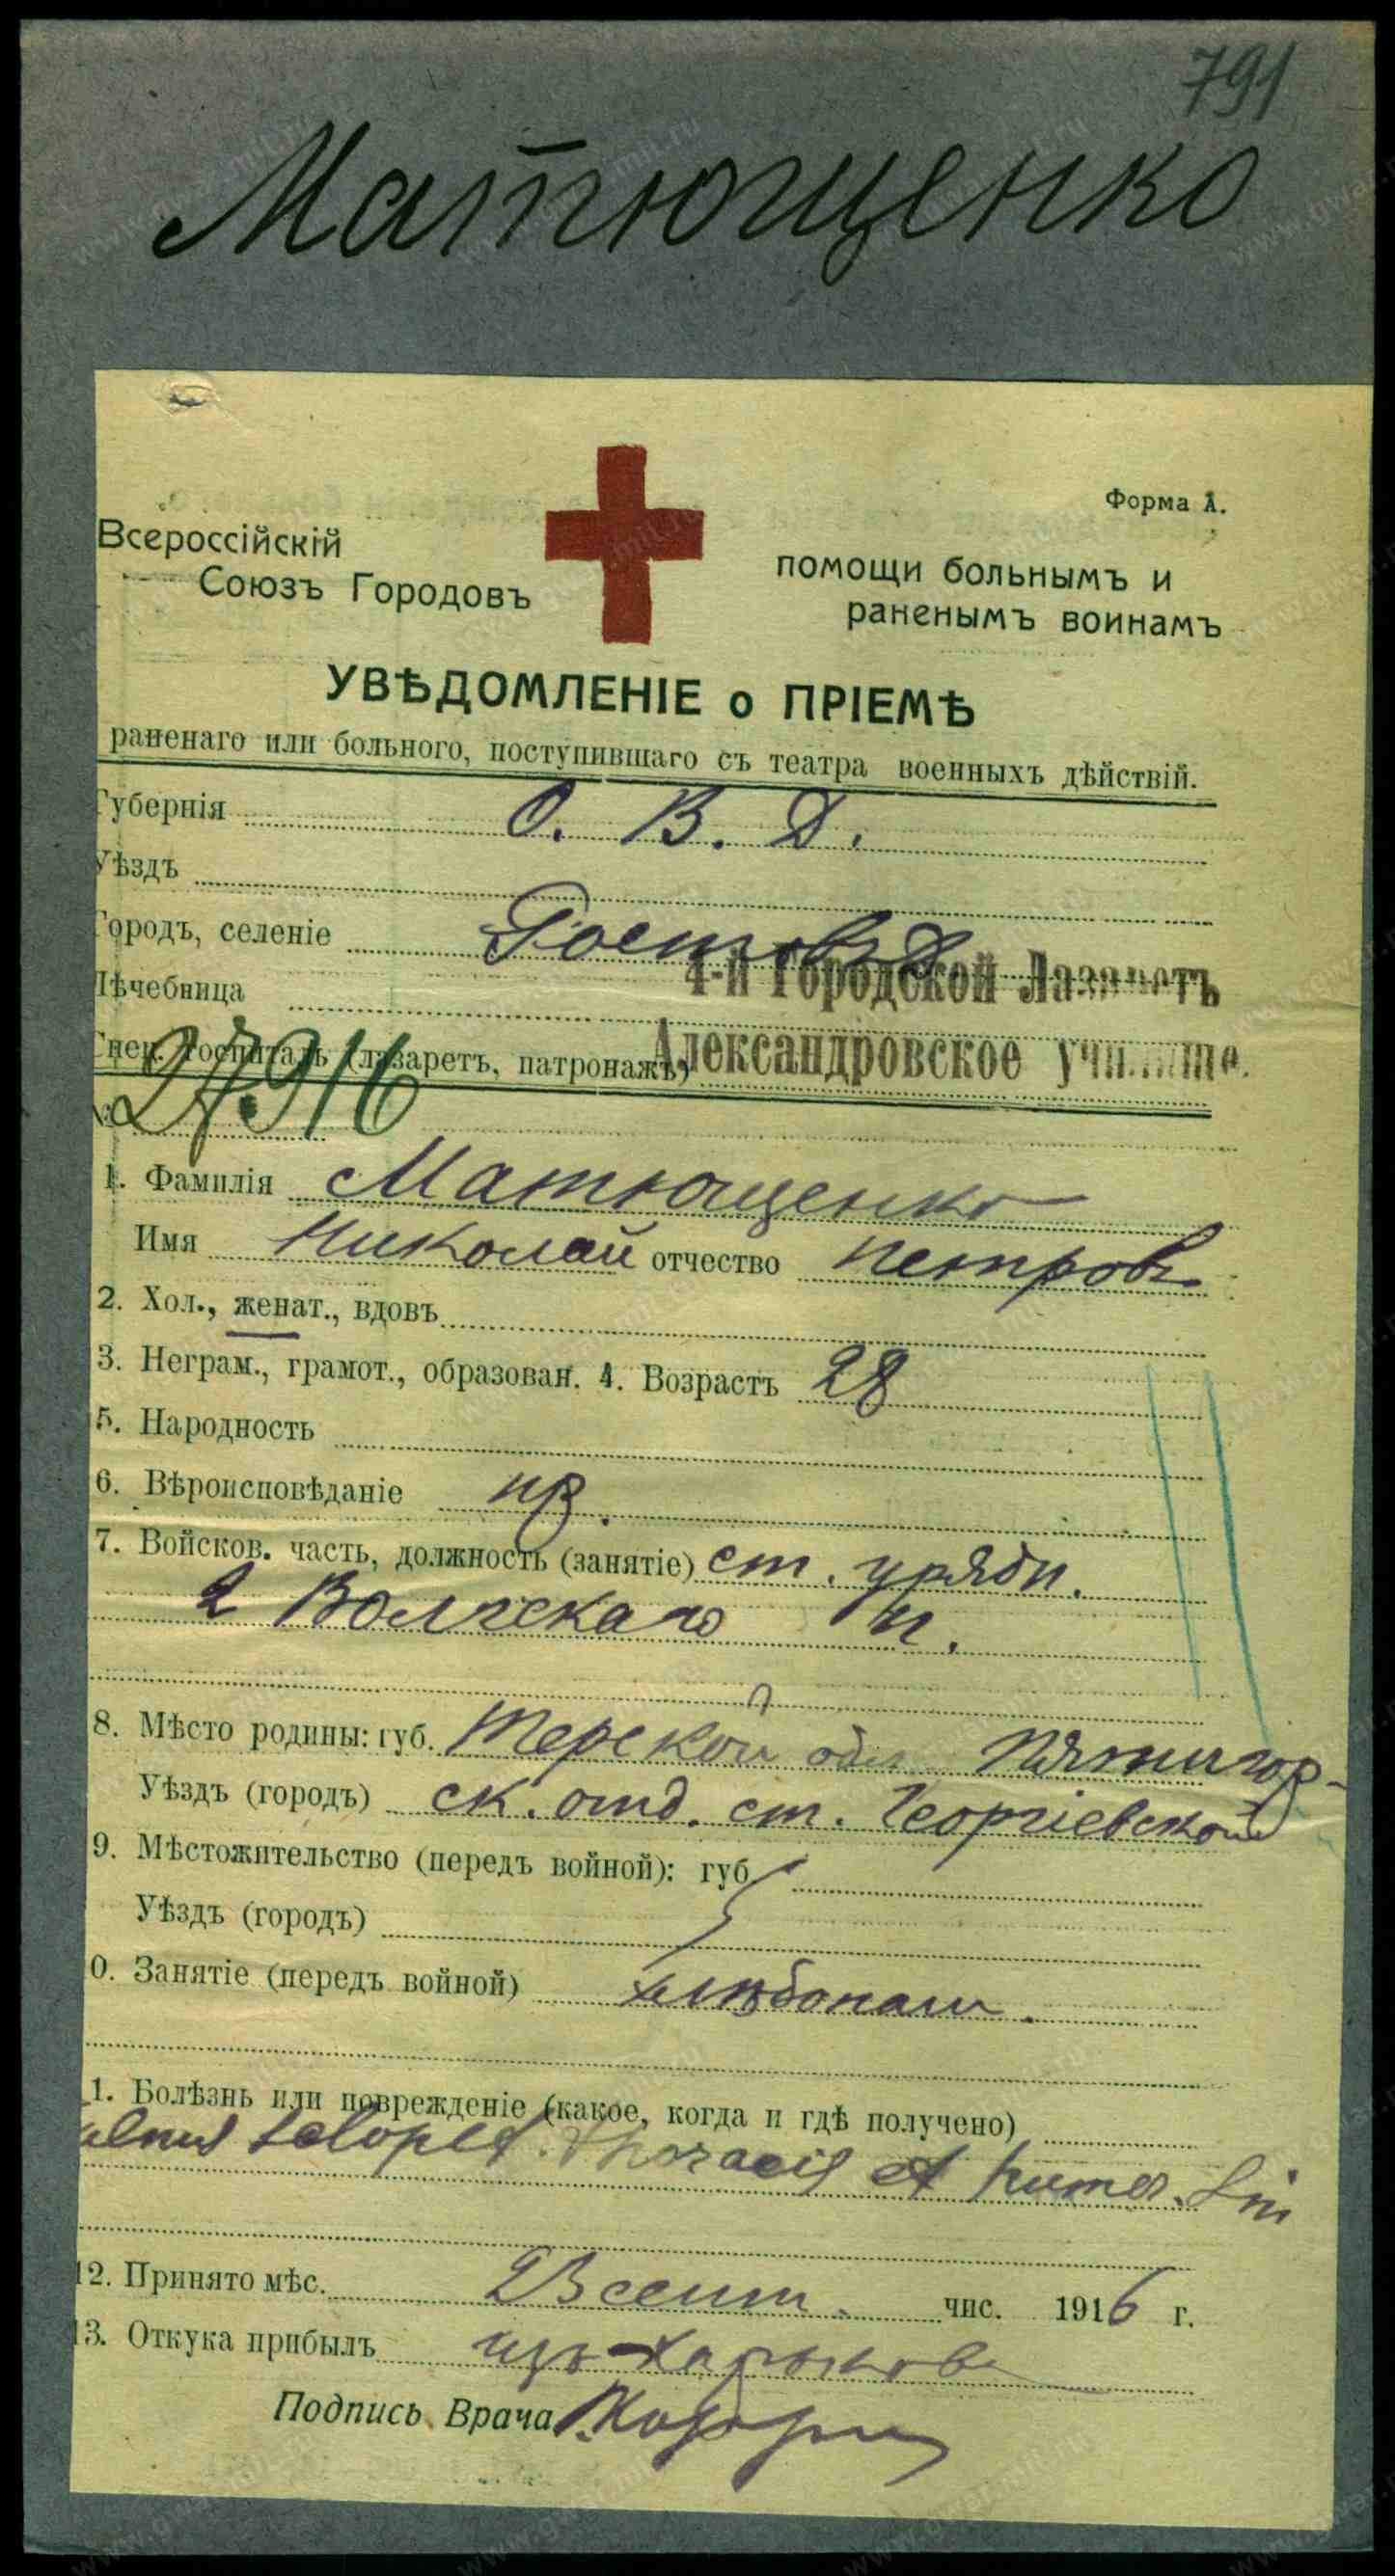 791
Матющенко
Форма А.
Всероссійскій
Союзъ Городовъ
помощи больнымъ и
раненымъ воинамъ
УВѢДОМЛЕНІЕ о ПРІЕМѢ
раненаго или больного, поступившаго съ театра военныхъ дѣйствій.
Губернія О. В. Д.
Уѣздъ
Городъ, селеніе Ростовъ Д
Лѣчебница 4-й Городской Лазаретъ
госпиталь (лазаретъ, патронажъ) Александровское училище.
27916
1. Фамилія Матющенко
Имя Николай отчество Петровъ
2. Хол., женат., вдовъ
3. Неграм., грамот., образован. 4. Возрастъ 28
5. Народность
6. Вѣроисповѣданіе пр.
7. Войсков. часть, должность (занятіе) ст. урядн.
2 Волгскаго п.
8. Мѣсто родины: губ. Терской обл. Пятигор-
Уѣздъ (городъ) ск. отд. ст. Георгіевской
9. Мѣстожительство (передъ войной): губ.
Уѣздъ (городъ)
0. Занятіе (передъ войной) хлѣбопаш.
1. Болѣзнь или поврежденіе (какое, когда и гдѣ получено)
ulnus sclopet. thoracis et humer. Sin
12. Принято мѣс. 23 сент. чис. 1916 г.
13. Откука прибылъ изъ Харькова
Подпись Врача